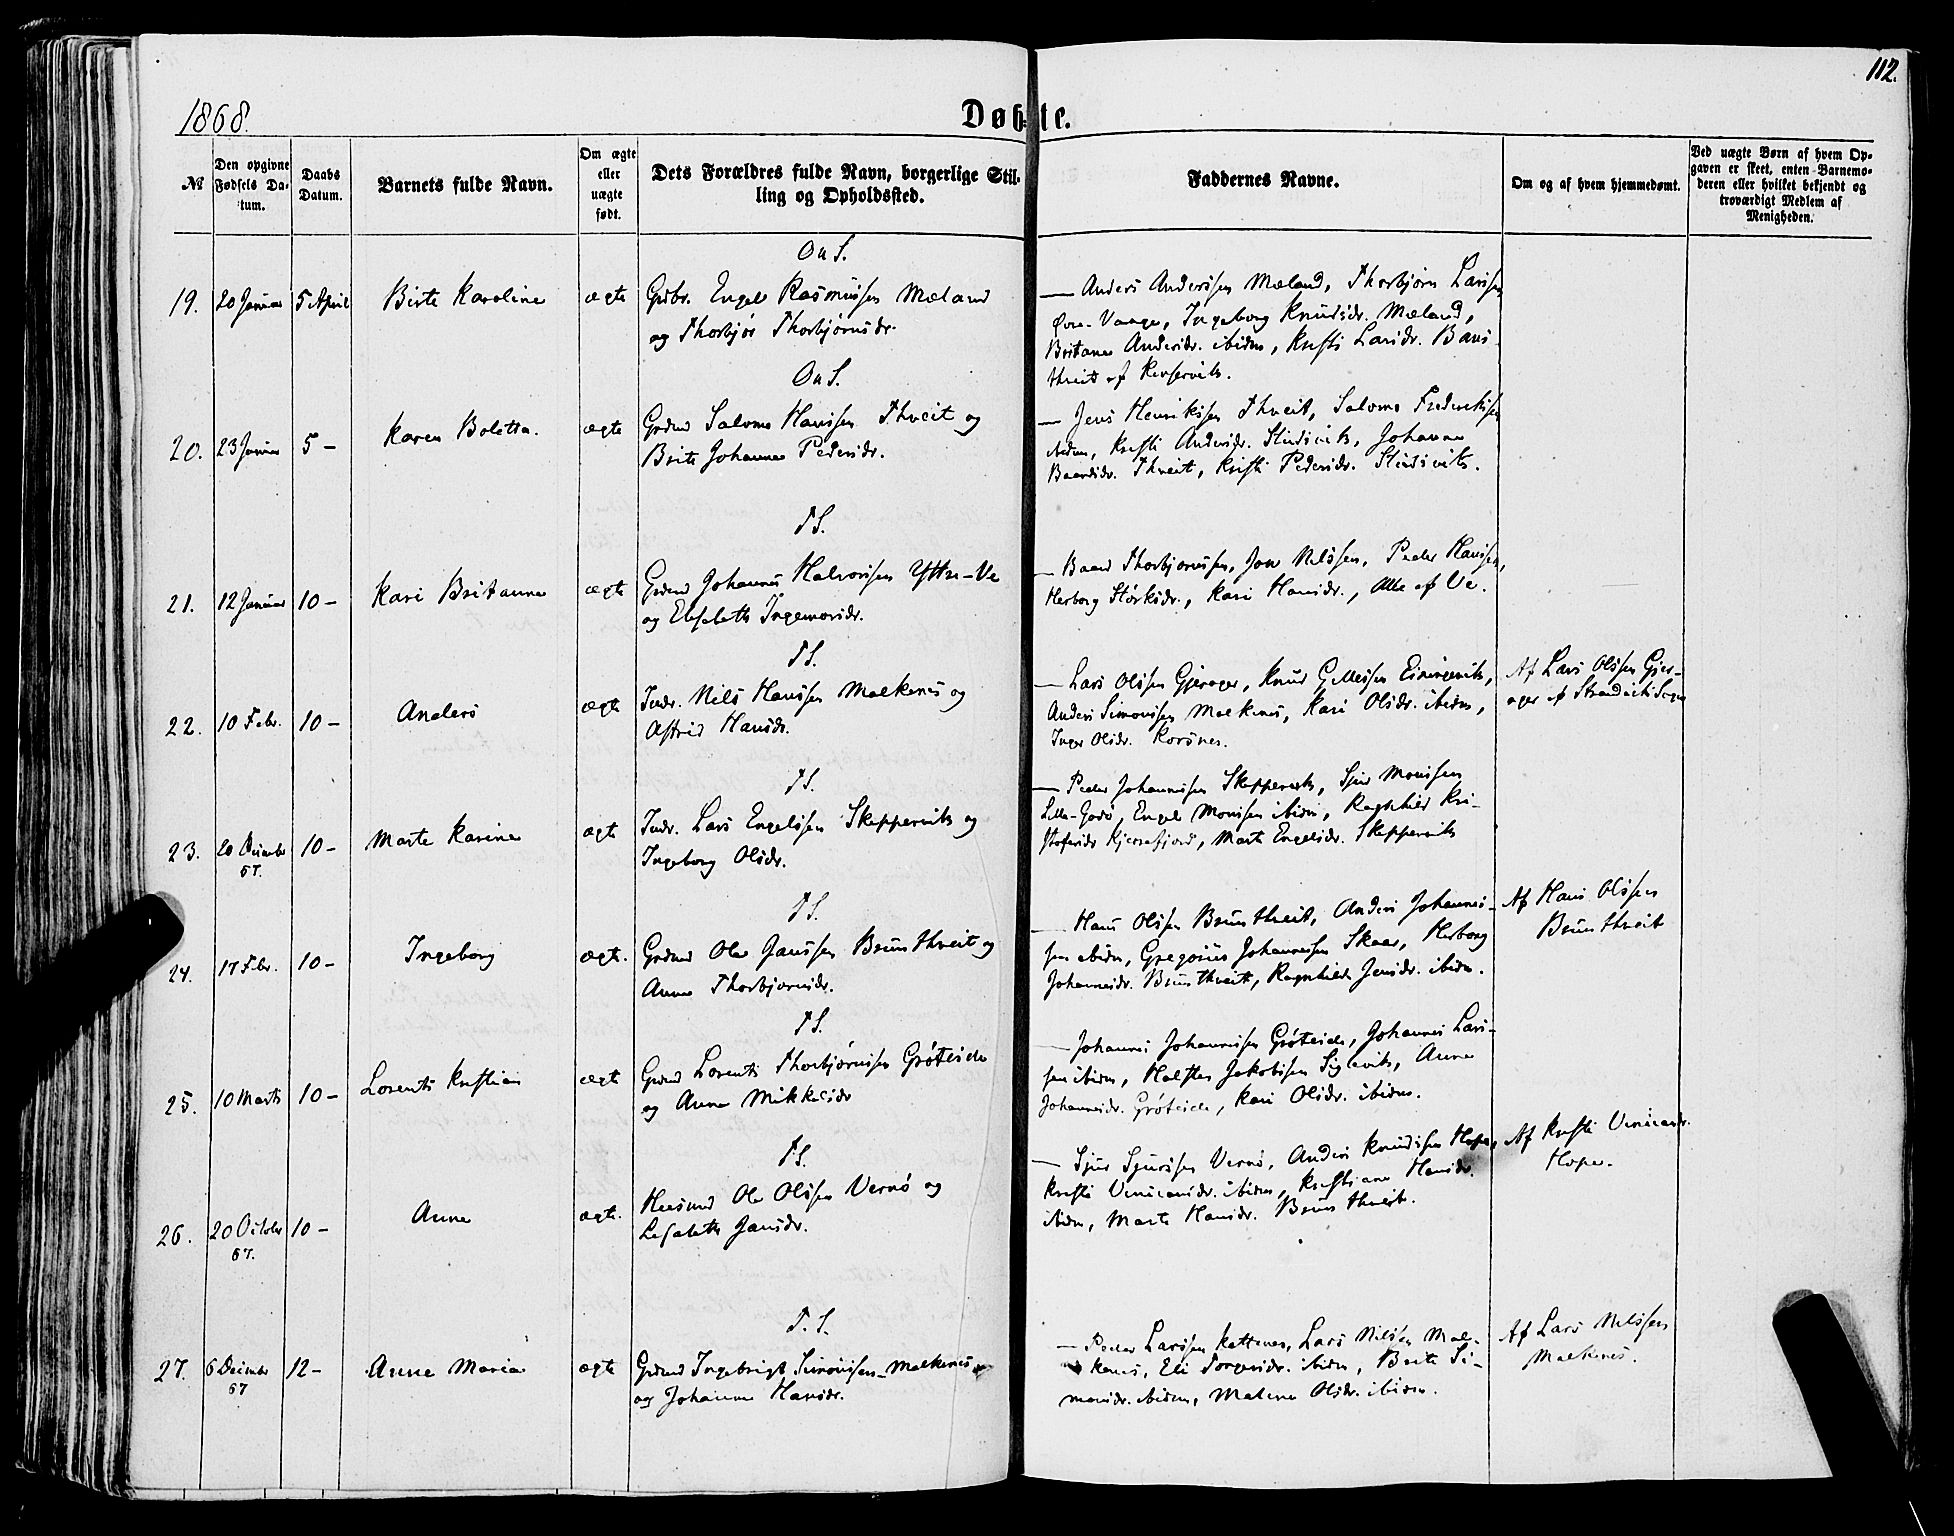 112.
1868.
Døbte.
№
Den opgivne Fødsels Datum.
Daabs Datum.
Barnets fulde Navn.
Om ægte eller uægte født.
Dets Forældres fulde Navn, borgerlige Stilling og Opholdssted.
Faddernes Navne.
Om og af hvem hjemmedøbt.
Ved uægte Børn af hvem Opgaven er skeet, enten Barnemoderen eller hvilket bekjendt og troværdigt Medlem af Menigheden.
O u S.
19. 20 Januar 5 April Birte Karoline ægte
Grdbr. Engel Rasmussen Mæland
og Thorbjør Thorbjørnsdr.
— Anders Anderssen Mæland, Thorbjørn Larssen
Øvre-Vaage, Ingeborg Knudsdr. Mæland,
Britane Andersdr. ibidm, Kristi Larsdr. Baus-
thveit af
O u S.
20. 23 Januar 5 – Karen Boletta. ægte
Grdmd Salomo Hanssen Thveit og
Brite Johanne Pedersdr.
— Jens Henrikssen Thveit, Salomo Frederikssen
ibidm, Kristi Andersdr. Johanne
Baardsdr. Thveit, Kristi Pedersdr.
T S.
21. 12 Januar 10 – Kari Britanne ægte
Grdmd Johannes Halvorssen Yttre-Ve
og Elisabeth Ingemorsdr.
— Baard Thorbjørnssen, Jon Nilssen, Peder Hanssen,
Herborg Størksdr., Kari Hansdr., Alle af Ve.
T S.
22. 10 Febr. 10 – Anders ægte
Indr. Nils Hanssen Malkenes og
Astrid Hansdr.
— Lars Olssen Gjerager, Knud
Anders Simonssen Malkenes, Kari Olsdr. ibidm,
Inger Olsdr. Korsnes.
Af Lars Olssen Gjer-
ager af Strandvik Sogn
T S.
23. 20 Decimbr 67. 10 – Marte Karine ægte
Indr. Lars Engelssen Skeppervik og
Ingeborg Olsdr.
— Peder Johannessen Skeppervik, Sjur Monssen
Lille-Godø, Engel Monssen ibidm, Ragnhild Kri-
stofersdr Marte Engelsdr. Skeppervik
T S.
24. 17 Febr. 10 – Ingeborg ægte.
Grdmd Ole Janssen Brunthveit og
Anne Thorbjørnsdr.
— Hans Olssen Brunthveit, Anders Johannes-
sen ibidm, Gregorius Johannessen Skaar, Herborg
Johannesdr. Brunthveit, Ragnhild Jensdr. ibidm.
Af Hans Olssen
Brunthveit
T S.
25. 10 Marts 10 – Lorents Kristian ægte
Grdmd Lorents Thorbjørnssen Grøteide
og Anne Mikkelsdr
— Johannes Johannessen Grøteide, Johannes Lars-
sen ibidm, Halsten Jakobssen Siglevik, Anne
Johannesdr. Grøteide, Kari Olsdr. ibidm.
T S.
26. 20 October 67. 10 – Anne ægte.
Huusmd Ole Olssen Vernø og
Lisabeth Jansdr.
— Sjur Sjurssen Vernø, Anders Knudssen Hope,
Kristi Vincensdr. ibidm, Kristiane Hansdr.
ibidm, Marte Hansdr. Brunthveit.
Af Kristi Vincensdr.
Hope.
T. S.
27. 6 Decimbr 67 12 – Anne Maria ægte
Grdmd Ingebrigt Simonssen Malkenes
og Johanne Hansdr.
— Peder Larssen Kattenes, Lars Nilssen Mal-
kenes, Eli Torgersdr. ibidm, Brite Si-
monsdr. ibidm, Malene Olsdr. ibidm.
Af Lars Nilssen
Malkenes.